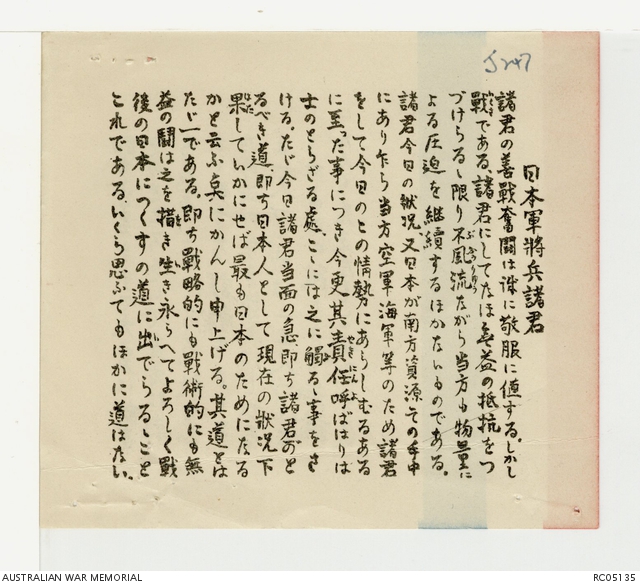 J247
日本軍將兵諸君
諸君の善戰奮鬪は誠に敬服に値する。しかし
戰である。諸君にしてなほ無益の抵抗をつ
づけらるゝ限り不風流ながら当方も物量に
よる圧迫を継續するほかないものである。
諸君今日の狀況又日本が南方資源その手中
にあり乍ら当方空軍、海軍等のため諸君
をして今日のこの情勢にあらしむるある
に至った事につき今更其責任呼ばはりは
士のとらざる處、こゝには之に觸るゝ事をさ
ける。たゞ今日諸君当面の急、即ち諸君のと
るべき道、即ち日本人として現在の狀況下
果していかにせば最も日本のためになる
かと云ふ点にかんし申上げる。其道とは
たゞ一である。即ち戰略的にも戰術的にも無
益の鬪は之を措き生き永らへてよろしく戰
後の日本につくすの道に出でらるゝこと
これである。いくら思ふてもほかに道はない。
AUSTRALIAN WAR MEMORIAL
RC05135